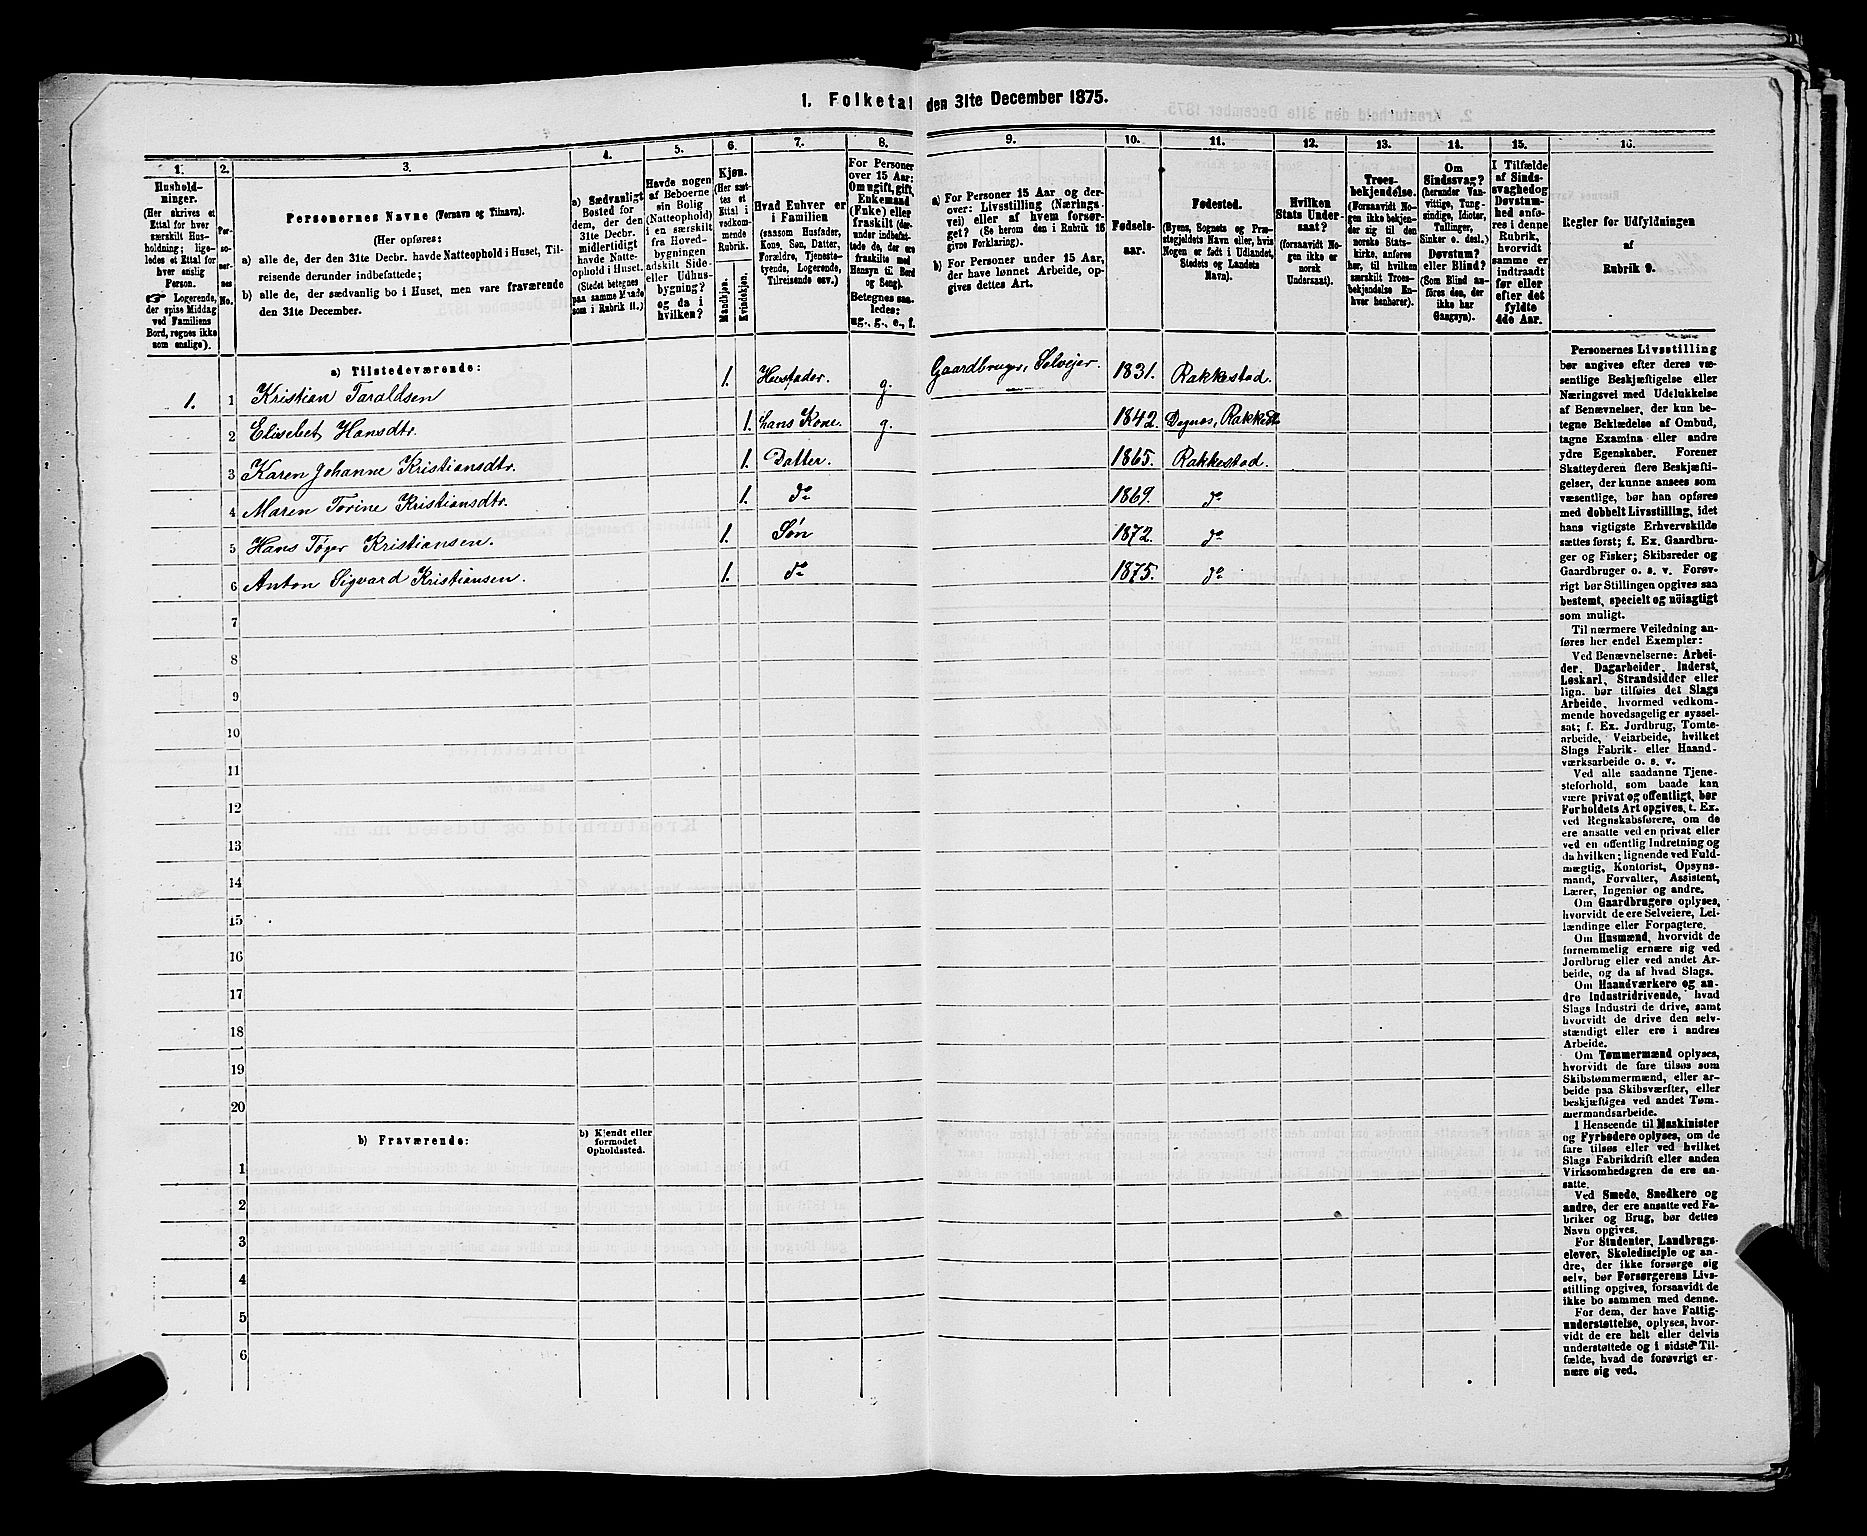 1. Folketal den 31te December 1875.
1.
Hushold-
ninger.
(Her skrives et
Ettal for hver
særskilt Hus-
holdning; lige-
ledes et Ettal for
hver enslig
Person.
☞ Logerende,
der spise Middag
ved Familiens
Bord, regnes ikke
som enslige).
2.
Per-
so-
ner-
nes
No.
3.
Personernes Navne (Fornavn og Tilnavn).
(Her opføres:
a) alle de, der den 31te Decbr. havde Natteophold i Huset, Til-
reisende derunder indbefattede;
b) alle de, der sædvanlig bo i Huset, men vare fraværende
den 31te December.
4.
a) Sædvanligt
Bosted for
dem, der den
31te Decbr.
midlertidigt
havde Natte-
ophold i Huset.
(Stedet betegnes
paa samme Maade
som i Rubrik 11.)
5.
Havde nogen
af Beboerne
sin Bolig
(Natteophold)
i en særskilt
fra Hoved-
bygningen
adskilt Side-
eller Udhus-
bygning?
og da i
hvilken?
6.
Kjøn.
(Her sæt-
tes et
Ettal i
vedkom-
mende
Rubrik.
Mandkjøn.
Kvindekjøn.
7.
Hvad Enhver er
i Familien
(saasom Husfader,
Kone, Søn, Datter,
Forældre, Tjeneste-
tyende, Logerende,
Tilreisende osv.)
8.
For Personer
over 15 Aar:
Om ugift, gift,
Enkemand
(Enke) eller
fraskilt (der-
under indbefat-
tede de, der ere
fraskilte med
Hensyn til Bord
og Seng).
Betegnes saa-
ledes:
ug., g., e., f.
9.
a) For Personer 15 Aar og der-
over: Livsstilling (Nærings-
vei) eller af hvem forsør-
get? (Se herom den i Rubrik 16
givne Forklaring).
b) For Personer under 15 Aar,
der have lønnet Arbeide, op-
gives dettes Art.
10.
Fødsels-
aar.
11.
Fødested.
(Byens, Sognets og Præ-
stegjeldets Navn eller, hvis
Nogen er født i Udlandet,
Stedets og Landets
Navn).
12.
Hvilken
Stats Under-
saat?
(forsaavidt No-
gen ikke er
norsk
Undersaat).
13.
Troes-
bekjendelse.
(Forsaavidt No-
gen ikke bekjen-
der sig til den
norske Stats-
kirke, anføres
her, til hvilken
særskilt Troes-
bekjendelse En-
hver henhører).
14.
Om
Sindssvag?
(herunder Van-
vittige, Tung-
sindige, Idioter,
Tullinger,
Sinker o. desl.)
Døvstum?
eller Blind?
(Som Blind an-
føres den, der
ikke har
Gangsyn).
15.
I Tilfælde
af Sinds-
svaghed og
Døvstum-
hed anfø-
res i denne
Rubrik,
hvorvidt
samme er
indtraadt
før eller
efter det
fyldte
4de Aar.
16.
Regler for Udfyldningen
af
Rubrik 9.
a) Tilstedeværende:
1. 1 Kristian Taraldsen 1. Husfader. g. Gaardbruger, Selveier. 1831. Rakkestad.
2 Elisebet Hansdtr. 1. hans Kone. g. 1842. Degnes, Rakkest
3 Karen Johanne Kristiansdtr. 1. Datter. 1865. Rakkestad.
4 Maren Torine Kristiansdtr. 1. do 1869. do
5 Hans Tøger Kristiansen. 1. Søn 1872. do
6 Anton Sigvard Kristiansen. 1. do 1875. do
7
8
9
10
11
12
13
14
15
16
17
18
19
20
b) Fraværende:
b) Kjendt eller
formodet
Opholdssted.
1
2
3
4
5
6
Personernes Livsstilling
bør angives efter deres væ-
sentlige Beskjæftigelse eller
Næringsvei med Udelukkelse
af Benævnelser, der kun be-
tegne Beklædelse af Ombud,
tagne Examina eller andre
ydre Egenskaber. Forener
Skatteyderen flere Beskjæfti-
gelser, der kunne ansees som
væsentlige, bør han opføres
med dobbelt Livsstilling, idet
hans vigtigste Erhvervskilde
sættes først; f. Ex. Gaardbru-
ger og Fisker; Skibsreder og
Gaardbruger o. s. v. Forøv-
rigt bør Stillingen opgives saa
bestemt, specielt og nøiagtigt
som muligt.
Til nærmere Veiledning an-
føres her endel Exempler:
Ved Benævnelserne: Arbei-
der, Dagarbeider, Inderst,
Løskarl, Strandsidder eller
lign. bør tilføies det Slags
Arbeide, hvormed vedkom-
mende hovedsagelig er syssel-
sat; f. Ex. Jordbrug, Tomte-
arbeide, Veiarbeide, hvilket
Slags Fabrik- eller Haand-
værksarbeide o. s. v.
Ved alle saadanne Tjene-
steforhold, som baade kan
være privat og offentligt, bør
Forholdets Art opgives, t. Ex.
ved Regnskabsførere, om de
ere ansatte ved en privat eller
ved en offentlig Indretning og
da hvilken; lignende ved Fuld-
mægtig, Kontorist, Opsyns-
mand, Forvalter, Assistent,
Lærer, Ingeniør og andre.
Om Gaardbrugere oplyses,
hvorvidt de ere Selveiere, Lei-
lændinge eller Forpagtere.
Om Husmænd, hvorvidt de
fornemmelig ernære sig ved
Jordbrug eller ved andet Ar-
beide, og da af hvad Slags.
Om Haandværkere og an-
dre Industridrivende, hvad
Slags Industri de drive, samt
hvorvidt de drive den selv-
stændigt eller ere i andres
Arbeide.
Om Tømmermænd oplyses,
hvorvidt de fare tilsøs som
Skibstømmermænd, eller ar-
beide paa Skibsværfter, eller
beskjæftiges ved andet Tøm-
mermandsarbeide.
I Henseende til Maskinister
og Fyrbødere oplyses, om de
fare tilsøs eller ved hvilket
Slags Fabrikdrift eller anden
Virksomhedsgren de ere an-
satte.
Ved Smede, Snedkere og
andre, der ere ansatte ved Fa-
briker og Brug, bør dettes
Navn opgives.
For Studenter, Landbrugs-
elever, Skoledisciple og an-
dre, der ikke forsørge sig
selv, bør Forsørgerens Livs-
stilling opgives, forsaavidt de
ikke bo sammen med denne.
For dem, der have Fattig-
understøttelse, oplyses, hvor-
vidt de ere helt eller delvis
understøttede og i sidste Til-
fælde, hvad de forøvrigt er-
nære sig ved.